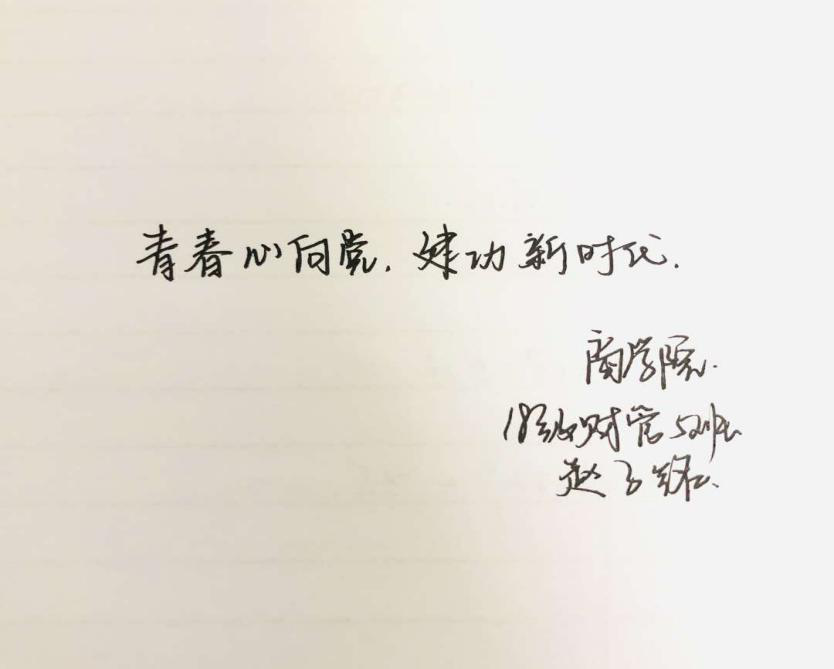 青春心向党,建功新时代.
商学院.
18级财管52班
赵子